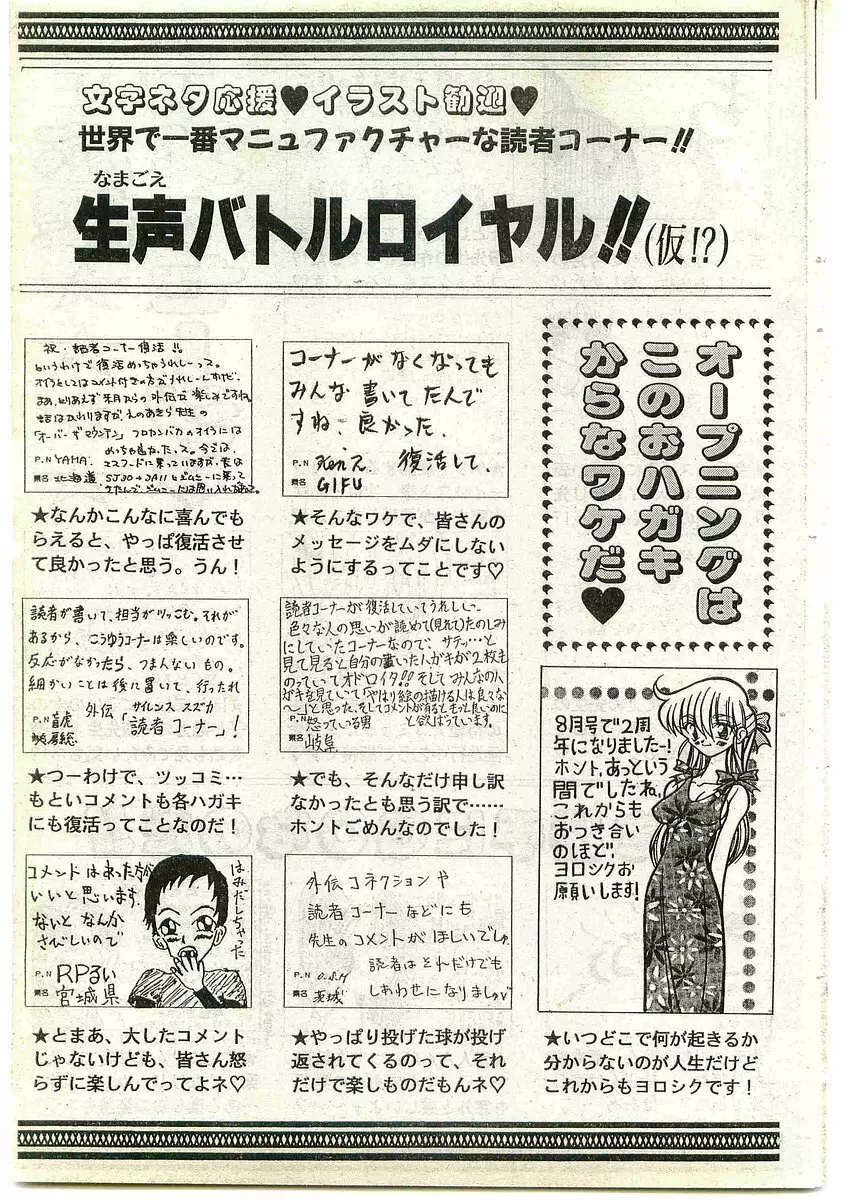 文字ネタ応援♥イラスト歓迎♥
世界で一番マニュファクチャーな読者コーナー!!
なまごえ
生声バトルロイヤル!!(仮!?)
オープニングは
このおハガキ
からなワケだ♥
コーナーがなくなっても
みんな書いてたんで
すね、良かった、
復活して、
P.N
県名 GIFU
★そんなワケで、皆さんの
メッセージをムダにしない
ようにするってことです♡
祝・読者コーナー復活!!
というわけで復活めっちゃうれしーっス。
オイラとしてはコメント付きの方がうれしーんすけど、
まあ、とりあえず来月からの外伝で楽しみですね。
話はかわりますが、えのあきら先生の
「オーバー・ザ・マウンテン」
P.N YAMA.
県名 北海道
★なんかこんなに喜んでも
らえると、やっぱ復活させ
て良かったと思う。うん!
8月号で2周
年になりましたー!
ホント、あっという
間でしたね、
これからも
おつき合い
のほど、
ヨロシクお
願いします!
★いつどこで何が起きるか
分からないのが人生だけど
これからもヨロシクです!
読者コーナーが復活していてうれしい。
色々な人の思いが読めて(見れて)たのしみ
にしていたコーナーなので、サテッ…と
見て見ると自分の書いた人がキが2枚も
のっていてオドロイタ!!そしてみんなの人
がキを見ていて「やはり絵の描ける人は良くな
〜」と思った、そしてコメントが有るともっと良いのに
と欲ばっています。
P.N 怒っている男
県名 岐阜
★でも、そんなだけ申し訳
なかったとも思う訳で……
ホントごめんなのでした!
読者が書いて、担当がツッこむ。それが
あるから、こうゆうコーナーは楽しいのです。
反応がなかったら、つまんないもの。
細かいことは後に置いて、行ったれ
外伝「読者コーナー」!
サイレンス スズカ
P.N 盲虎
県名
★つーわけで、ツッコミ…
もといコメントも各ハガキ
にも復活ってことなのだ!
外伝コネクションや
読者コーナーなどにも
先生のコメントがほしいでしゅ
読者はそれだけでも
しあわせになりましゅ♡
P.N O.S.M
県名 茨城
★やっぱり投げた球が投げ
返されてくるのって、それ
だけで楽しものだもんネ♡
コメントはあった方が
いいと思います。
ないとなんか
さびしいので
はみだしちゃった
P.N RPるい
県名 宮城県
★とまあ、大したコメント
じゃないけども、皆さん怒
らずに楽しんでってよネ♡